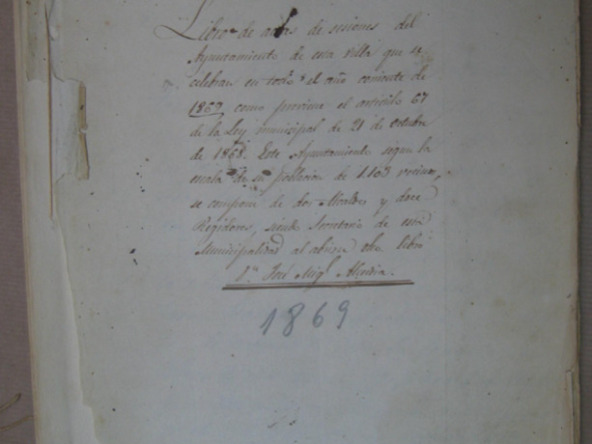 Libro de actas de sesiones del
Ayuntamiento de esta villa que se
celebran en todo el año corriente de
1869 como previene el artículo 67
de la Ley municipal de 21 de octubre
de 1868. Este Ayuntamiento segun la
escala de su poblacion de 1.103 vecinos,
se compone de dos Alcaldes y doce
Regidores, siendo Secretario de esta
Municipalidad al abrirse este libro
Dn. José Migl.
1869